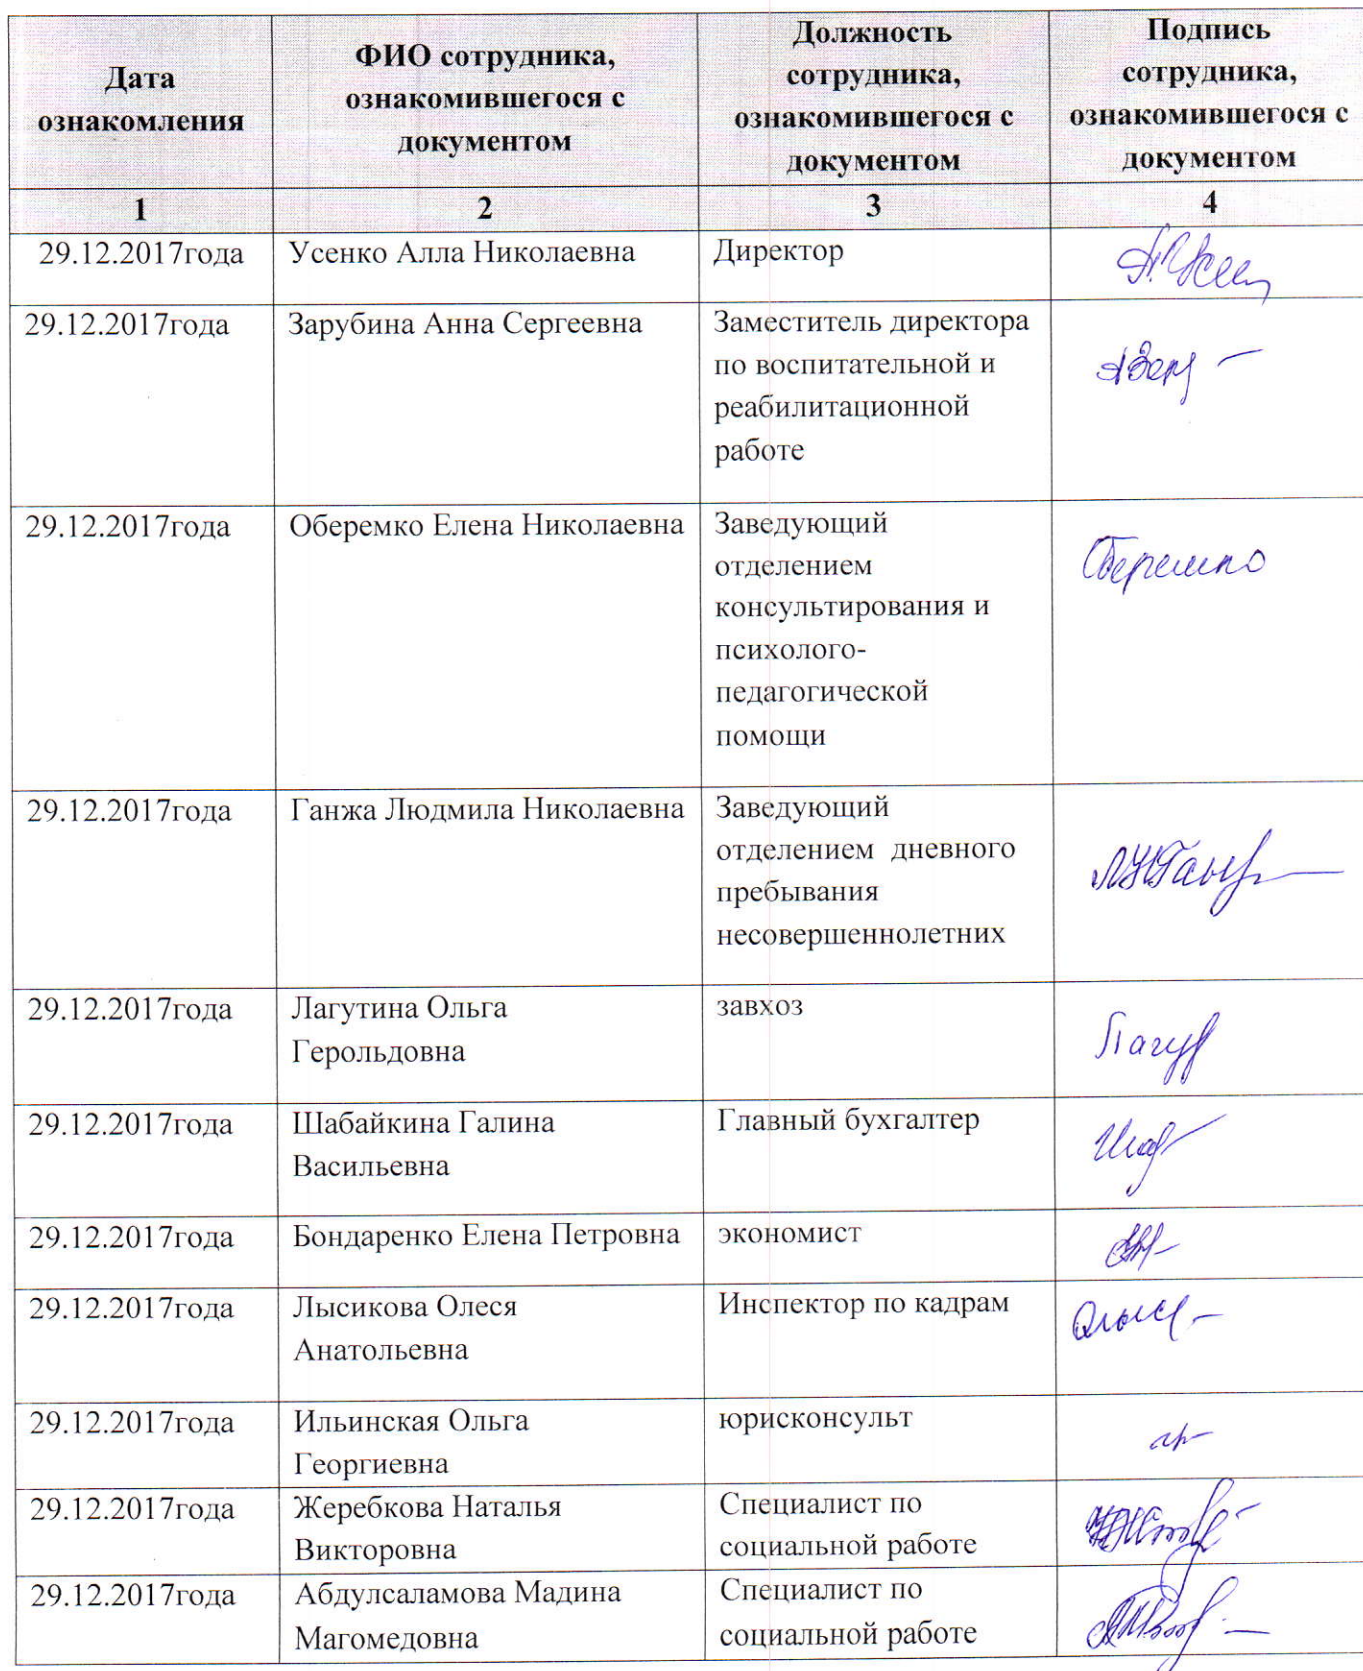 Дата
ознакомления
ФИО сотрудника,
ознакомившегося с
документом
Должность
сотрудника,
ознакомившегося с
документом
Подпись
сотрудника,
ознакомившегося с
документом
1
2
3
4
29.12.2017года
Усенко Алла Николаевна
Директор
29.12.2017года
Зарубина Анна Сергеевна
Заместитель директора
по воспитательной и
реабилитационной
работе
29.12.2017года
Оберемко Елена Николаевна
Заведующий
отделением
консультирования и
психолого-
педагогической
помощи
Оберемко
29.12.2017года
Ганжа Людмила Николаевна
Заведующий
отделением дневного
пребывания
несовершеннолетних
29.12.2017года
Лагутина Ольга
Герольдовна
завхоз
29.12.2017года
Шабайкина Галина
Васильевна
Главный бухгалтер
29.12.2017года
Бондаренко Елена Петровна
экономист
29.12.2017года
Лысикова Олеся
Анатольевна
Инспектор по кадрам
29.12.2017года
Ильинская Ольга
Георгиевна
юрисконсульт
29.12.2017года
Жеребкова Наталья
Викторовна
Специалист по
социальной работе
29.12.2017года
Абдулсаламова Мадина
Магомедовна
Специалист по
социальной работе